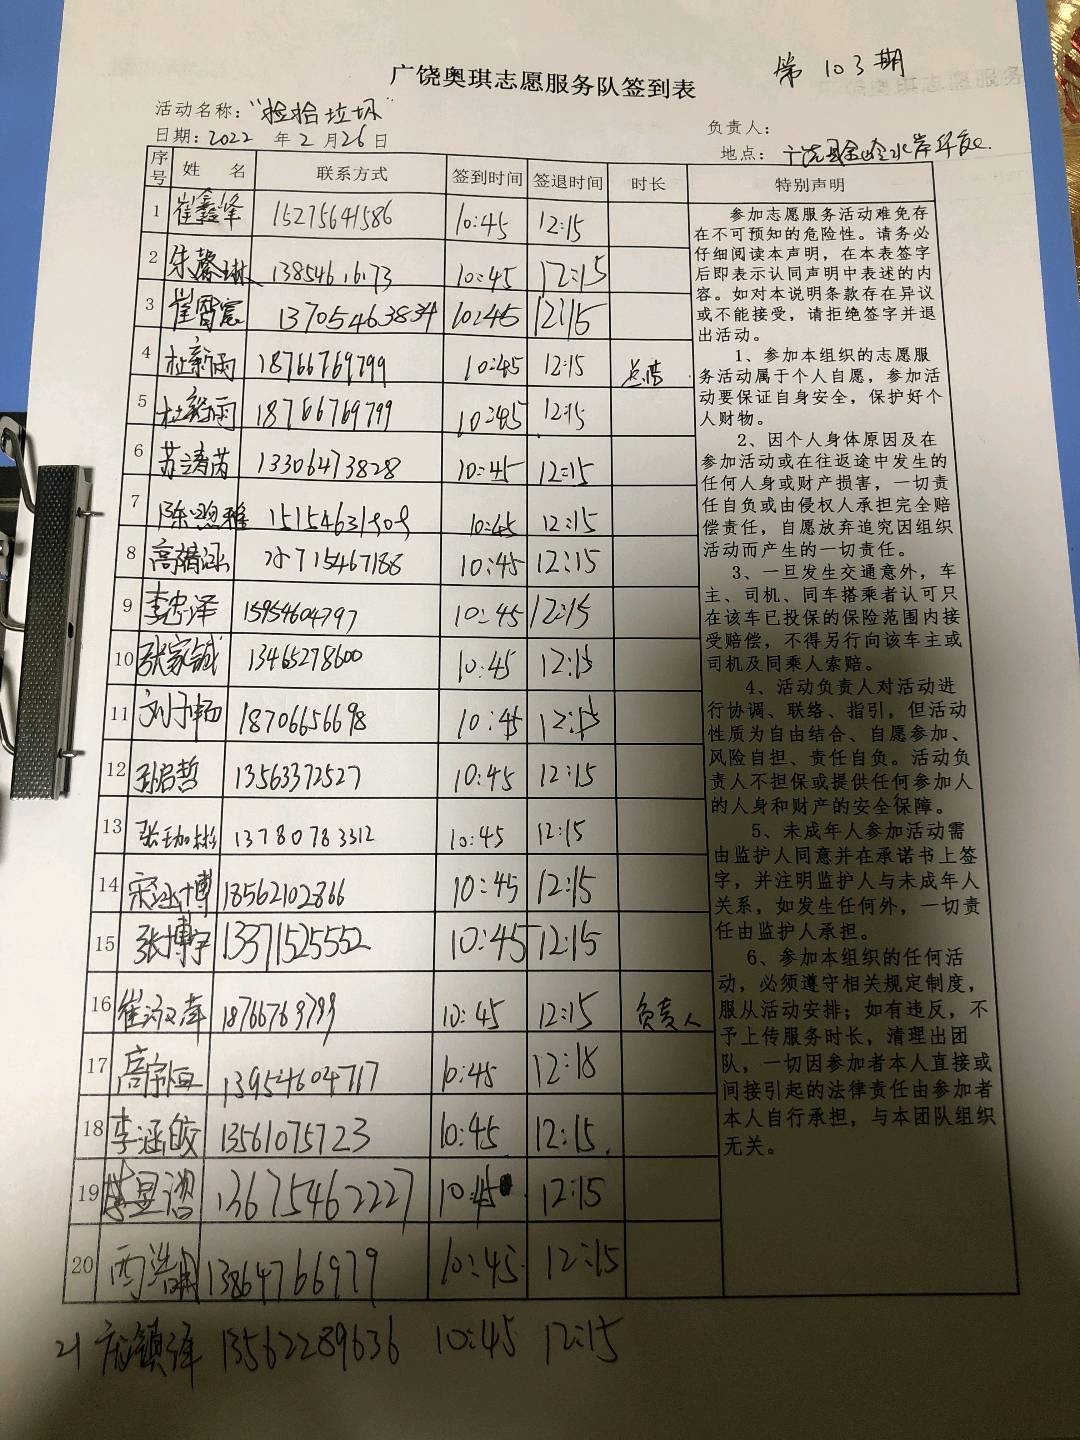 第103期
广饶奥琪志愿服务队签到表
活动名称:"捡拾垃圾"
负责人:
日期:2022年2月26日
地点:广饶县
序号 姓名 联系方式 签到时间 签退时间 时长 特别声明
1 崔鑫峰 15275641586 10:45 12:15
2 朱馨琳 13854616173 10:45 12:15
3 崔 13705463834 10:45 12:15
4 杜新雨 18766769799 10:45 12:15
5 杜毅雨 18766769799 10:45 12:15
6 苏涛芮 13306473828 10:45 12:15
7 陈 雅 10:45 12:15
8 高 涵 15467188 10:45 12:15
9 李忠泽 15954604797 10:45 12:15
10 张家铖 13465278600 10:45 12:15
11 刘子 18706656698 10:45 12:15
12 孙启哲 13563372527 10:45 12:15
13 张珈彬 13780783312 10:45 12:15
14 宋涵博 13562102866 10:45 12:15
15 张博宇 13371525552 10:45 12:15
16 崔 18766769799 10:45 12:15 负责人
17 高宇恒 13954604717 10:45 12:18
18 李涵皎 13561075723 10:45 12:15
19 李昱 13675462227 10:45 12:15
20 西浩 13864766979 10:45 12:15
21 镇 13562289636 10:45 12:15
参加志愿服务活动难免存
在不可预知的危险性。请务必
仔细阅读本声明,在本表签字
后即表示认同声明中表述的内
容。如对本说明条款存在异议
或不能接受,请拒绝签字并退
出活动。
1、参加本组织的志愿服
务活动属于个人自愿,参加活
动要保证自身安全,保护好个
人财物。
2、因个人身体原因及在
参加活动或在往返途中发生的
任何人身或财产损害,一切责
任自负或由侵权人承担完全赔
偿责任,自愿放弃追究因组织
活动而产生的一切责任。
3、一旦发生交通意外,车
主、司机、同车搭乘者认可只
在该车已投保的保险范围内接
受赔偿,不得另行向该车主或
司机及同乘人索赔。
4、活动负责人对活动进
行协调、联络、指引,但活动
性质为自由结合、自愿参加、
风险自担、责任自负。活动负
责人不担保或提供任何参加人
的人身和财产的安全保障。
5、未成年人参加活动需
由监护人同意并在承诺书上签
字,并注明监护人与未成年人
关系,如发生任何外,一切责
任由监护人承担。
6、参加本组织的任何活
动,必须遵守相关规定制度,
服从活动安排;如有违反,不
予上传服务时长,清理出团
队,一切因参加者本人直接或
间接引起的法律责任由参加者
本人自行承担,与本团队组织
无关。